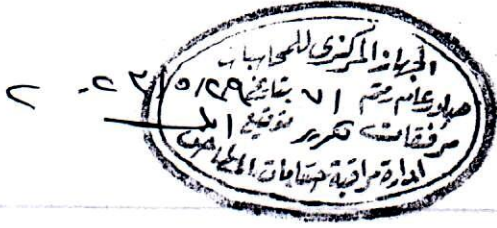 الجهاز المركزى للمحاسبات
صادر عام رقم ٧١ بتاريخ ٢٠٢٣/٥/٢٩
مرفقات تقرير توقيع
ادارة مراقبة حسابات المطاحن
٢